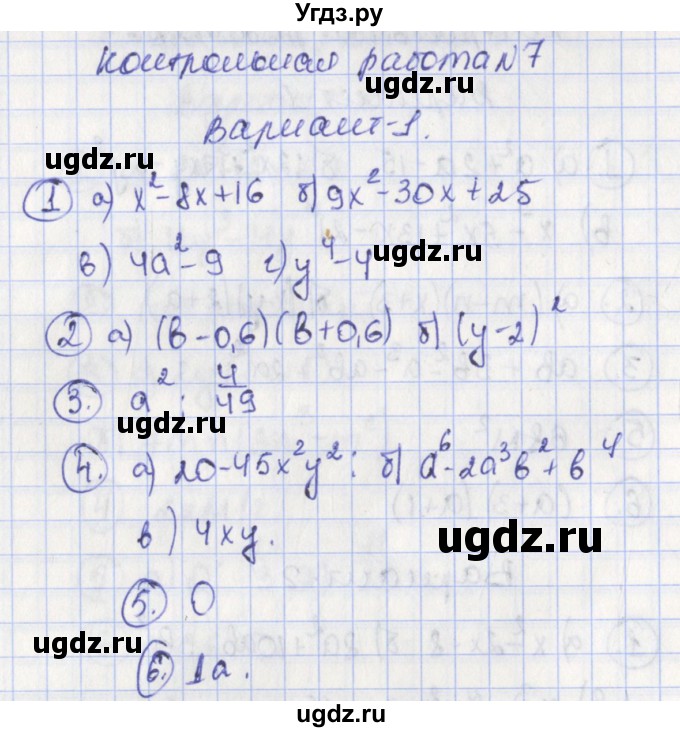 Угдз.ру
Контрольная работа №7
ugdz.ru
Вариант-1.
ugdz.ru
① а) x²-8x+16 б) 9x²-30x+25
в) 4a²-9 г) y⁴-4
ugdz.ru
② а) (в-0,6)(в+0,6) б) (y-2)²
③. a² ; 4/49
ugdz.ru
④. а) 20-45x²y²; б) a⁶-2a³в²+в⁴
в) 4xy.
ugdz.ru
⑤. 0
ugdz.ru ugdz.ru
⑥. 1а.
ugdz.ru